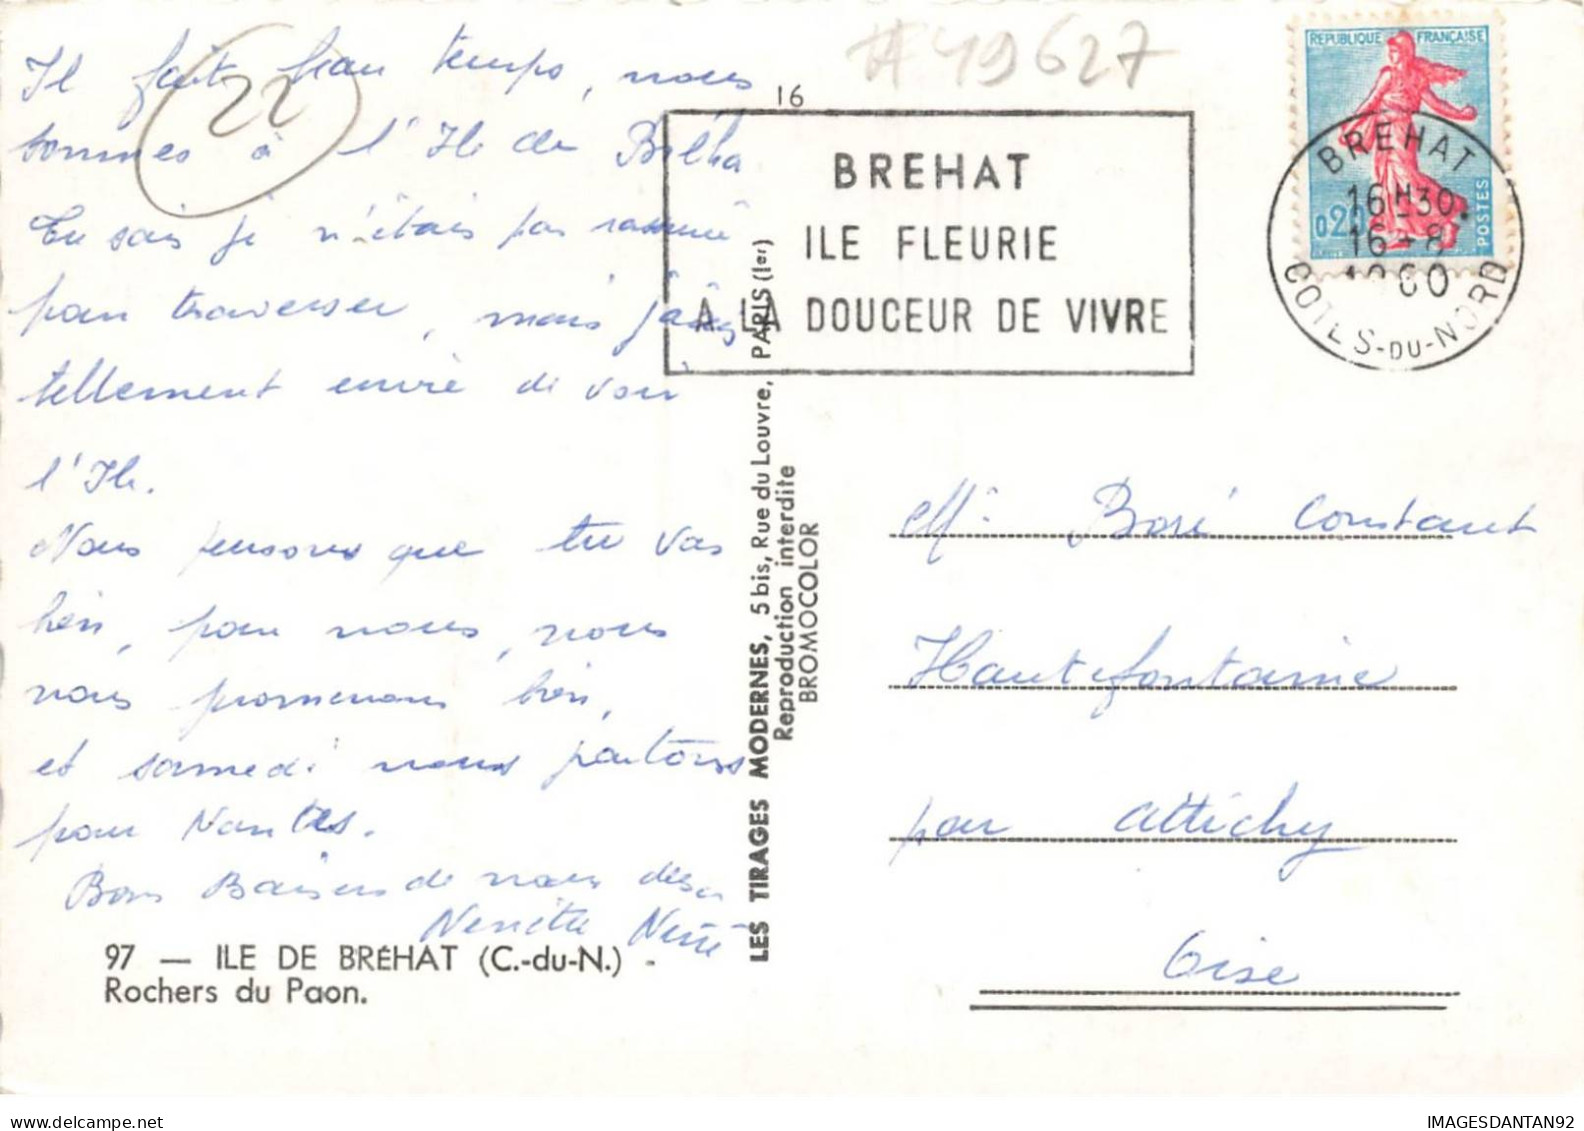 Il fait beau temps, nous
sommes à l'Ile de Bréha
Tu sais je n'étais pas rassuré
pour traverser, mais j'avais
tellement envie de voir
l'Ile.
Nous pensons que tu vas
bien, pour nous, nous
nous promenons bien,
et samedi nous partons
pour Nantes.
Bons Baisers de nous deux
22
97 — ILE DE BRÉHAT (C.-du-N.) -
Rochers du Paon.
LES TIRAGES MODERNES, 5 bis, Rue du Louvre, PARIS (1er)
Reproduction interdite
BROMOCOLOR
#49627
16
BREHAT
ILE FLEURIE
A LA DOUCEUR DE VIVRE
REPUBLIQUE FRANÇAISE
0,20
POSTES
BREHAT
16H30
16-8
1960
COTES-DU-NORD
Mr Boré Constant
Hautefontaine
par Attichy
Oise
IMAGESDANTAN92